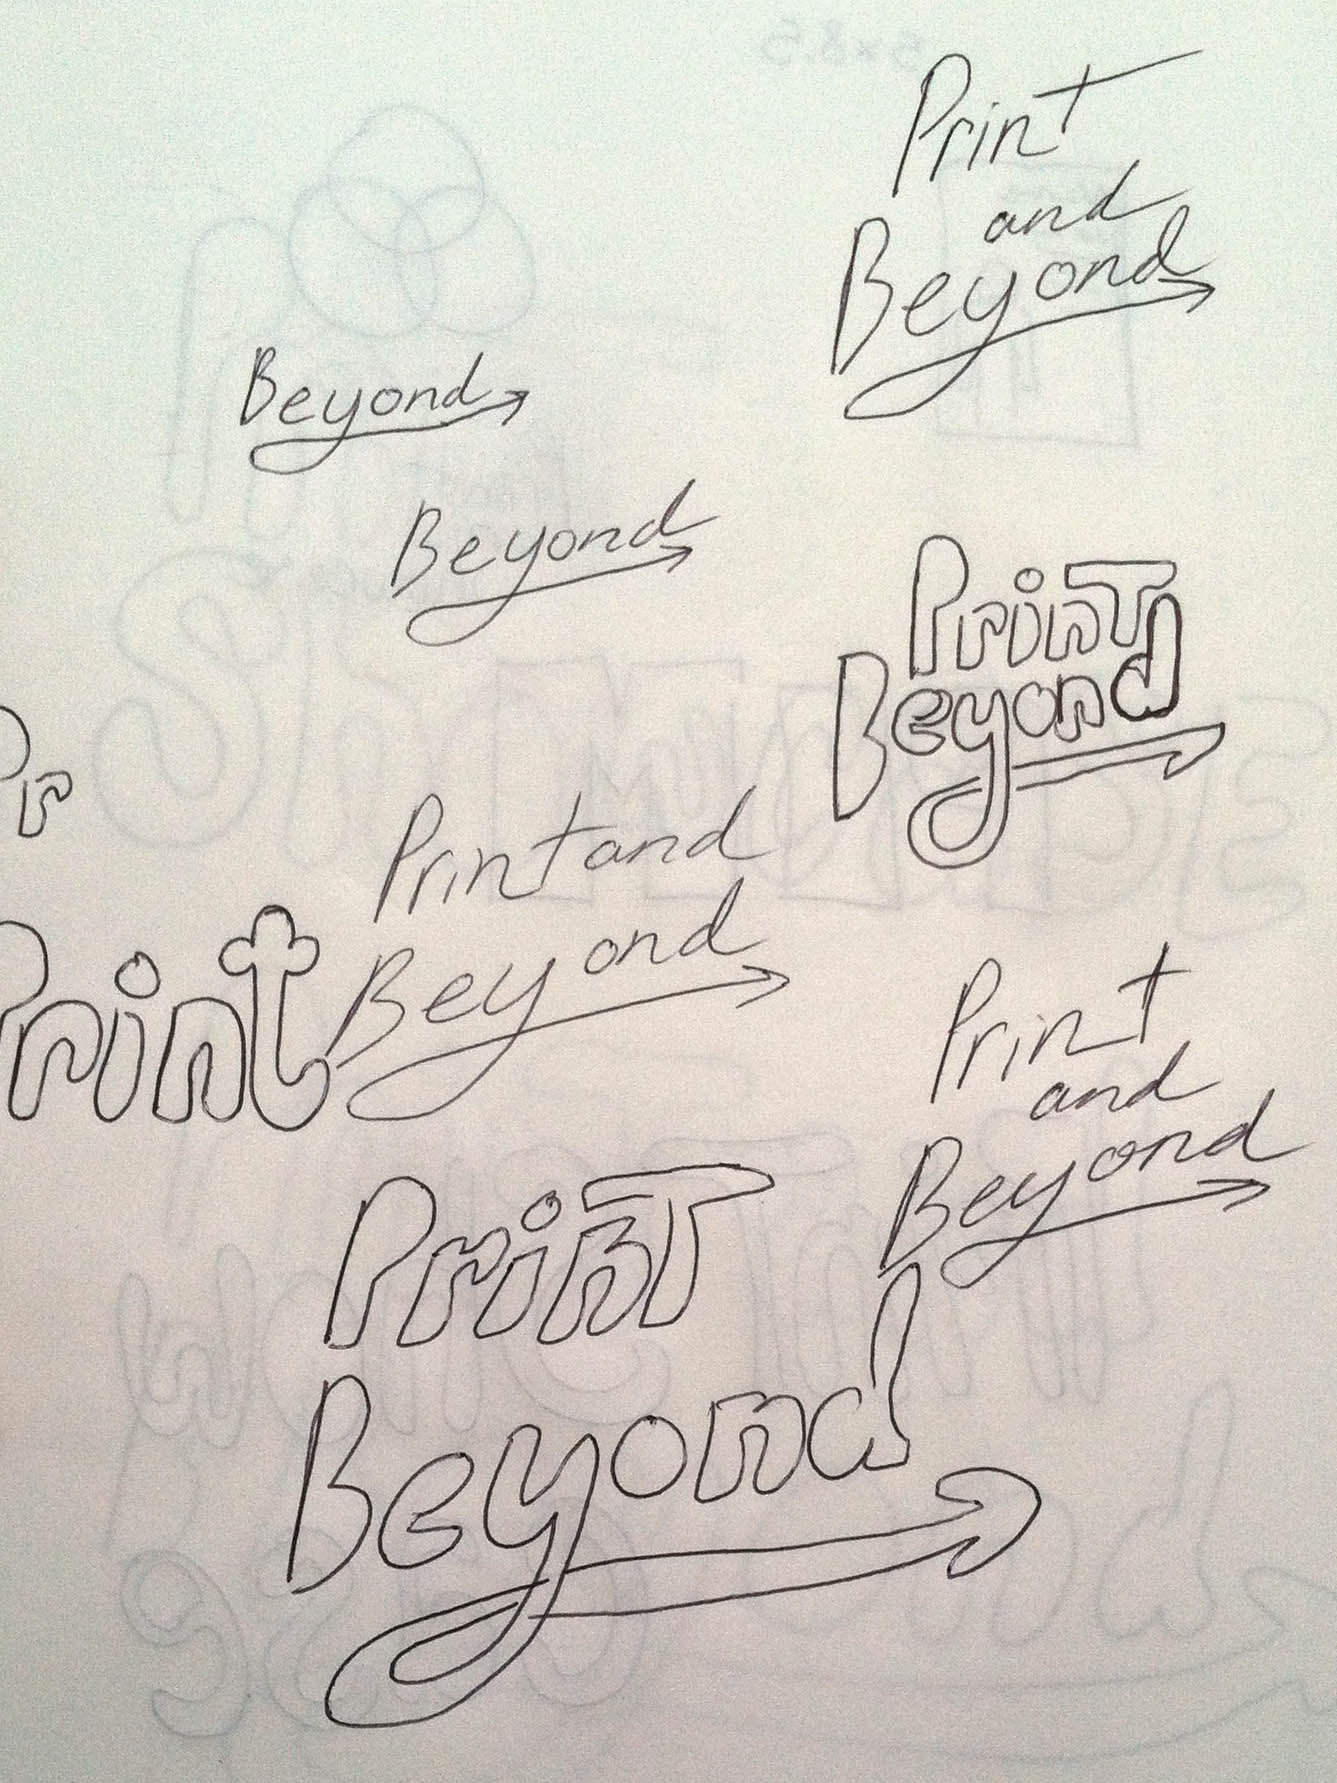 Print
and
Beyond
Beyond
Beyond
Print
Beyond
Pr
Print and
Beyond
Print
Print
and
Beyond
Print
Beyond